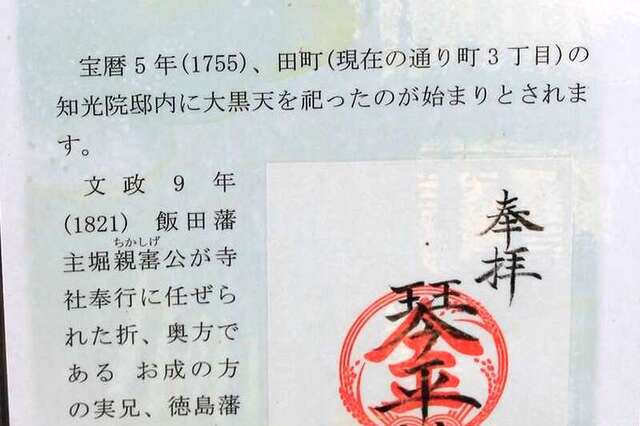 宝暦5年(1755)、田町(現在の通り町3丁目)の
知光院邸内に大黒天を祀ったのが始まりとされま
す。
文政9年
(1821) 飯田藩
ちかしげ
主堀親審公が寺
社奉行に任ぜら
れた折、奥方で
ある お成の方
の実兄、徳島藩
奉拝
琴平